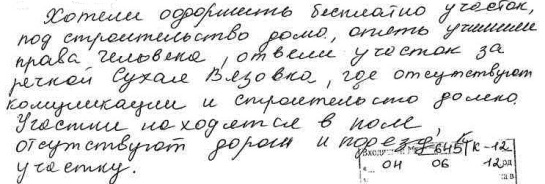 Хотели оформить бесплатно участок,
под строительство дома, опять ущимили
права человека, отвели участок за
речкой Сухая Вязовка, где отсутствуют
комуникации и строительство далеко.
Участки находятся в поле,
отсутствуют дороги и подезд к
участку.
6451к-12
04 06 12